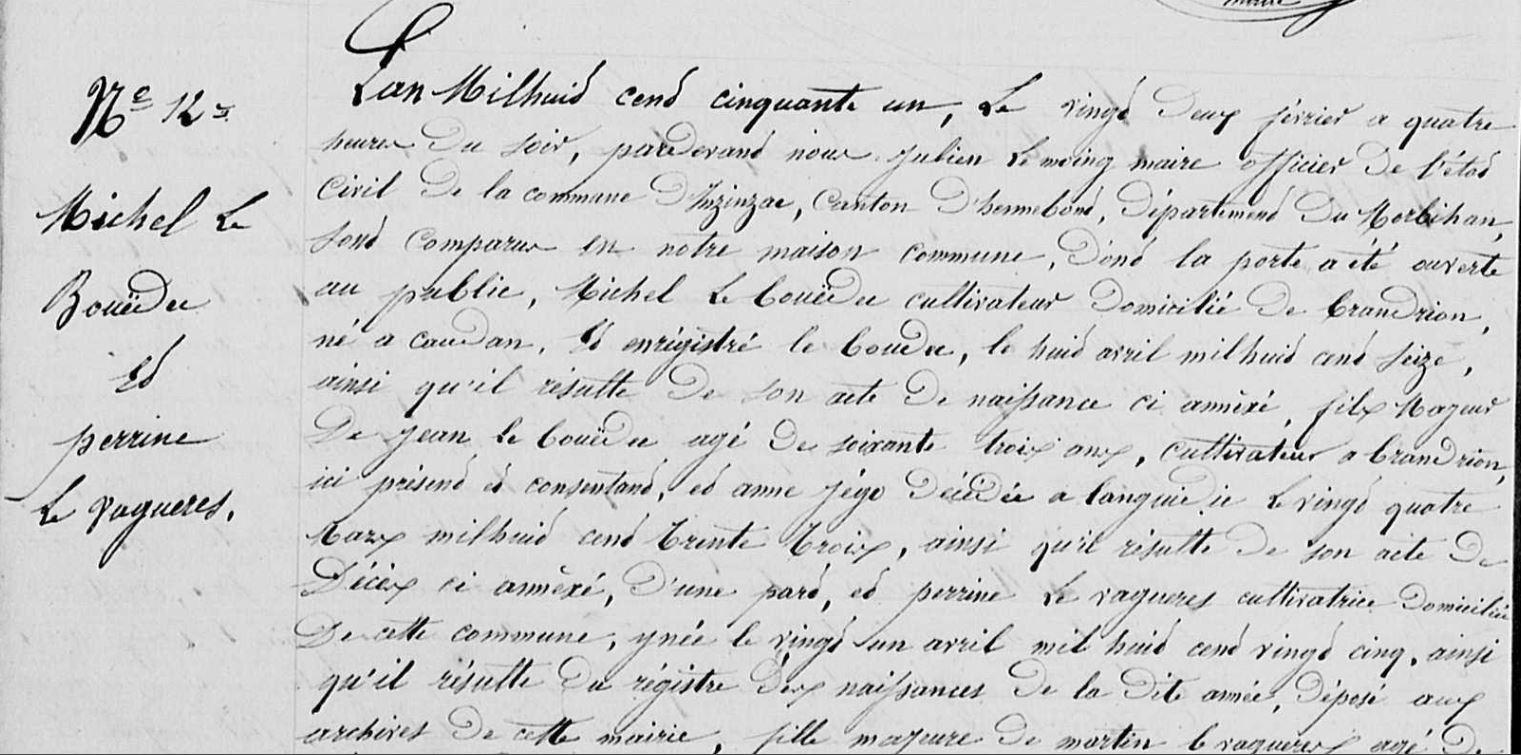 maire
Nº 12
Michel Le
Bouëdec
Et
perrine
Le vagueres.
L'an Milhuit cent cinquante un, Le vingt deux février a quatre
heures du soir, pardevant nous julien Le moing maire officier de l'état
Civil de la commune d'Inzinzac, Canton d'hennebont, département du Morbihan,
sont comparus en notre maison commune, dont la porte a été ouverte
au public, Michel Le bouëdec cultivateur domicilié de brandrion,
né a caudan, Et enrégistré le bouedec, le huit avril milhuit cent seize,
ainsi qu'il résulte de son acte de naissance ci annéxé, fils Majeur
De jean Le bouëdec agé de soixante trois ans, cultivateur a brandrion,
ici présent et consentant, et anne jégo décédée a languidic Le vingt quatre
Mars milhuit cent trente trois, ainsi qu'il résulte de son acte de
Décès ci annéxé, d'une part, et perrine Le vagueres cultivatrice domiciliée
De cette commune, y née le vingt un avril mil huit cent vingt cinq, ainsi
qu'il résulte du régistre des naissances de la dite année, déposé aux
archives de cette mairie, fille majeure de martin le vagueres agé de